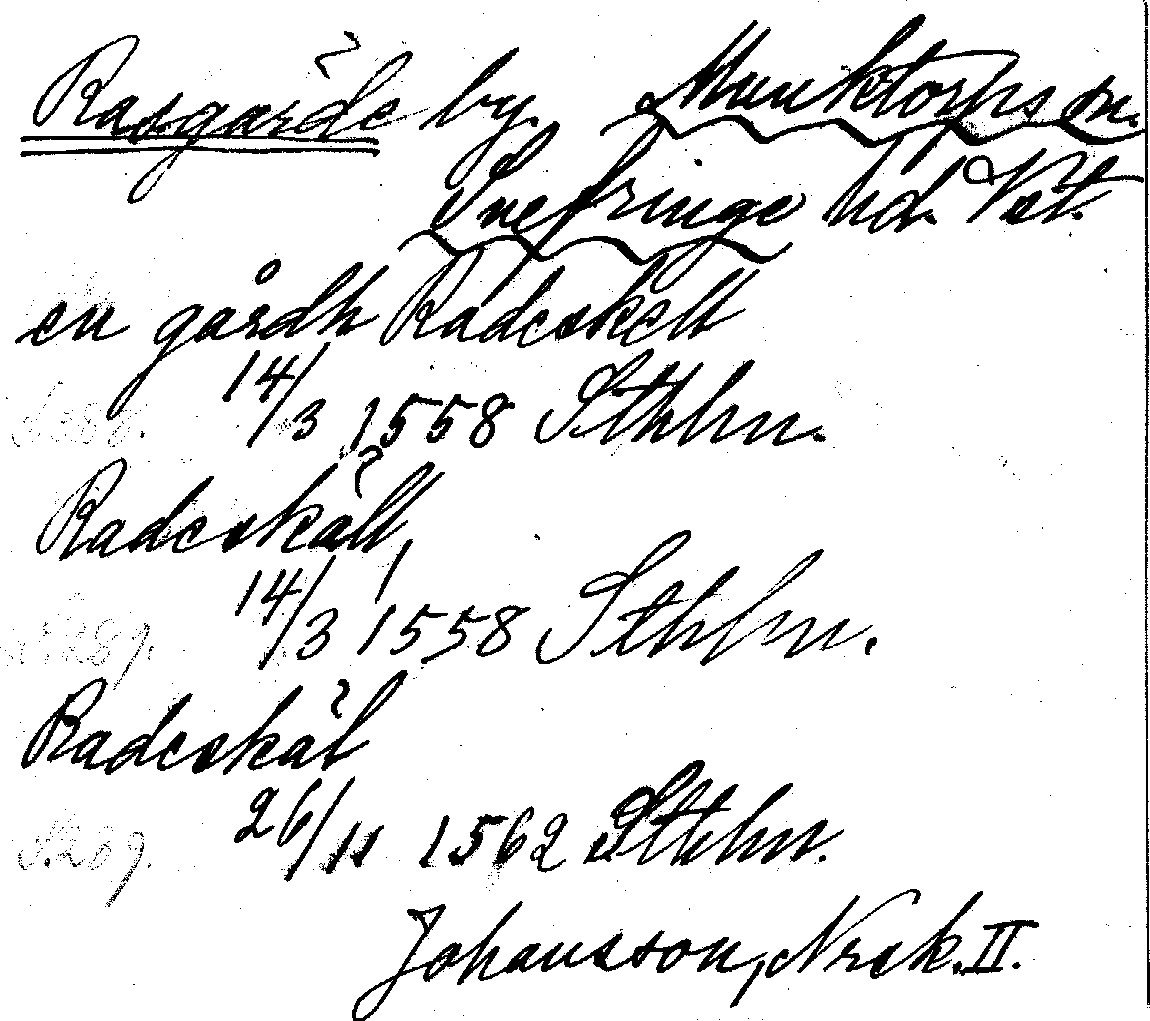 Rasgärde by. Munktorps sn.
Snefringe hd. Vst.
en gårdh Radeskell
14/3 1558 Sthlm.
Radeskäll
S. 289. 14/3 1558 Sthlm.
Radeskäl
S. 289. 26/11 1562 Sthlm.
Johansson, Nrsk. II.